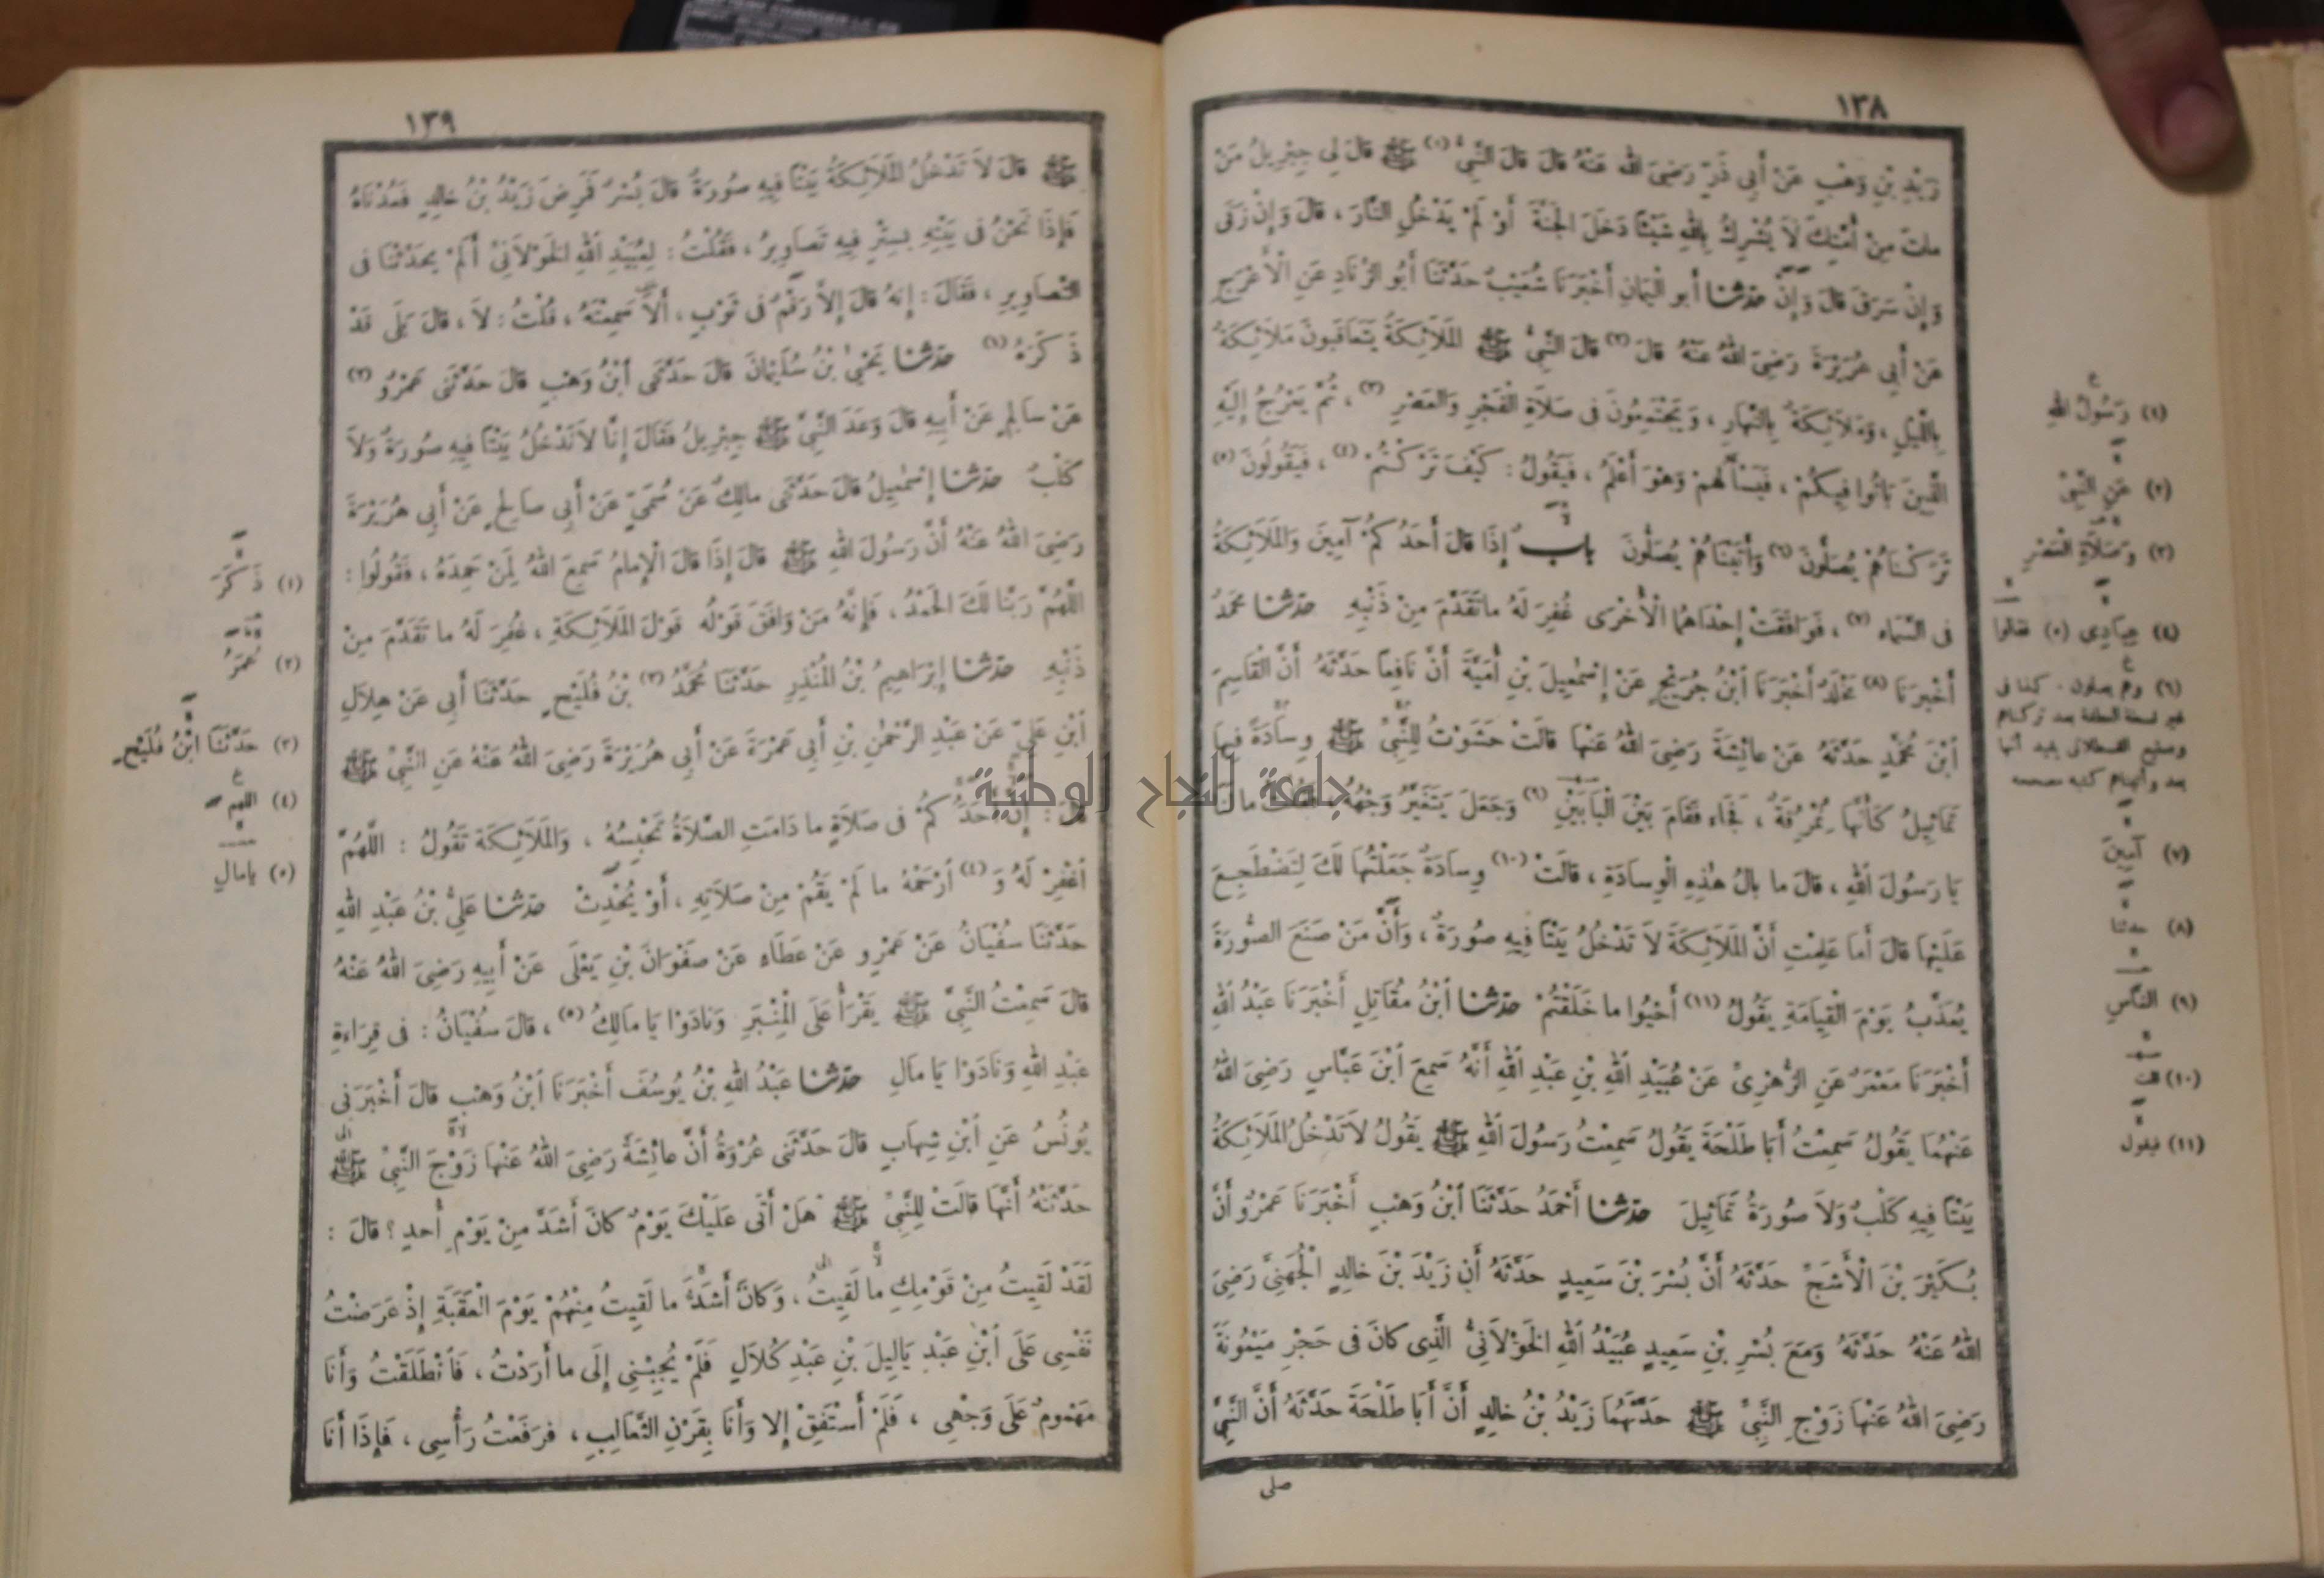 ١٣٨
زَيْدِ بْنِ وَهْبٍ عَنْ أَبِي ذَرٍّ رَضِيَ اللهُ عَنْهُ قَالَ قَالَ النَّبِيُّ (١) ﷺ قَالَ لِي جِبْرِيلُ مَنْ
ماتَ مِنْ أُمَّتِكَ لَا يُشْرِكُ بِاللهِ شَيْئًا دَخَلَ الجَنَّةَ أَوْ لَمْ يَدْخُلِ النَّارَ ، قَالَ وَإِنْ زَنَى
وَإِنْ سَرَقَ قَالَ وَإِنْ حدثنا أَبُو الْيَمَانِ أَخْبَرَنَا شُعَيْبٌ حَدَّثَنَا أَبُو الزِّنَادِ عَنِ الْأَعْرَجِ
عَنْ أَبِي هُرَيْرَةَ رَضِيَ اللهُ عَنْهُ قَالَ (٢) قَالَ النَّبِيُّ ﷺ المَلَائِكَةُ يَتَعَاقَبُونَ مَلَائِكَةٌ
بِاللَّيْلِ ، وَمَلَائِكَةٌ بِالنَّهَارِ ، وَيَجْتَمِعُونَ فِى صَلَاةِ الْفَجْرِ وَالْعَصْرِ (٣) ، ثُمَّ يَعْرُجُ إِلَيْهِ
الَّذِينَ بَاتُوا فِيكُمْ ، فَيَسْأَلُهُمْ وَهْوَ أَعْلَمُ ، فَيَقُولُ : كَيْفَ تَرَكْتُمْ (٤) ، فَيَقُولُونَ (٥)
تَرَكْنَاهُمْ يُصَلُّونَ (٦) وَأَتَيْنَاهُمْ يُصَلُّونَ باب إِذَا قَالَ أَحَدُكُمْ آمِينَ وَالمَلَائِكَةُ
فِى السَّمَاءِ (٧) ، فَوَافَقَتْ إِحْدَاهُمَا الْأُخْرَى غُفِرَ لَهُ ما تَقَدَّمَ مِنْ ذَنْبِهِ حدثنا مُحَمَّدٌ
أَخْبَرَنَا (٨) مَخْلَدٌ أَخْبَرَنَا ابْنُ جُرَيْجٍ عَنْ إِسْمٰعِيلَ بْنِ أُمَيَّةَ أَنَّ نَافِعًا حَدَّثَهُ أَنَّ الْقَاسِمَ
ابْنَ مُحَمَّدٍ حَدَّثَهُ عَنْ عائِشَةَ رَضِيَ اللهُ عَنْهَا قَالَتْ حَشَوْتُ لِلنَّبِيِّ ﷺ وِسَادَةً فِيهَا
تَمَاثِيلُ كَأَنَّهَا نُمْرُقَةٌ ، فَجَاءَ فَقَامَ بَيْنَ الْبَابَيْنِ (٩) وَجَعَلَ يَتَغَيَّرُ وَجْهُهُ ، فَقُلْتُ ما لَنَا
يَا رَسُولَ اللهِ ، قَالَ ما بالُ هٰذِهِ الْوِسادَةِ ، قَالَتْ (١٠) وِسادَةٌ جَعَلْتُهَا لَكَ لِتَضْطَجِعَ
عَلَيْهَا قَالَ أَما عَلِمْتِ أَنَّ المَلَائِكَةَ لَا تَدْخُلُ بَيْتًا فِيهِ صُورَةٌ ، وَأَنَّ مَنْ صَنَعَ الصُّورَةَ
يُعَذَّبُ يَوْمَ الْقِيَامَةِ يَقُولُ (١١) أَحْيُوا ما خَلَقْتُمْ حدثنا ابْنُ مُقَاتِلٍ أَخْبَرَنَا عَبْدُ اللهِ
أَخْبَرَنَا مَعْمَرٌ عَنِ الزُّهْرِيِّ عَنْ عُبَيْدِ اللهِ بْنِ عَبْدِ اللهِ أَنَّهُ سَمِعَ ابْنَ عَبَّاسٍ رَضِيَ اللهُ
عَنْهُمَا يَقُولُ سَمِعْتُ أَبَا طَلْحَةَ يَقُولُ سَمِعْتُ رَسُولَ اللهِ ﷺ يَقُولُ لَا تَدْخُلُ المَلَائِكَةُ
بَيْتًا فِيهِ كَلْبٌ وَلَا صُورَةُ تَمَاثِيلَ حدثنا أَحْمَدُ حَدَّثَنَا ابْنُ وَهْبٍ أَخْبَرَنَا عَمْرٌو أَنَّ
بُكَيْرَ بْنَ الْأَشَجِّ حَدَّثَهُ أَنَّ بُسْرَ بْنَ سَعِيدٍ حَدَّثَهُ أَنَّ زَيْدَ بْنَ خالِدٍ الْجُهَنِيَّ رَضِيَ
اللهُ عَنْهُ حَدَّثَهُ وَمَعَ بُسْرِ بْنِ سَعِيدٍ عُبَيْدُ اللهِ الخَوْلَانِيُّ الَّذِى كانَ فِى حَجْرِ مَيْمُونَةَ
رَضِيَ اللهُ عَنْهَا زَوْجِ النَّبِيِّ ﷺ حَدَّثَهُمَا زَيْدُ بْنُ خالِدٍ أَنَّ أَبَا طَلْحَةَ حَدَّثَهُ أَنَّ النَّبِيَّ
صلى
(١) رَسُولُ اللهِ
(٢) عَنِ النَّبِيِّ
(٣) وَصَلَاةِ الْعَصْرِ
(٤) عِبَادِى (٥) فقالوا
(٦) وهم يصلون . كذا فى
غير نسخة المعلقة بعد تركناهم
وصنيع القسطلانى يفيد أنها
بعد وأتيناهم كتبه
(٧) آمِينَ
(٨) حدثنا
(٩) النَّاسِ
(١٠) قلت
(١١) فيقول
١٣٩
ﷺ قَالَ لَا تَدْخُلُ المَلَائِكَةُ بَيْتًا فِيهِ صُورَةٌ قَالَ بُسْرٌ فَمَرِضَ زَيْدُ بْنُ خالِدٍ فَعُدْنَاهُ
فَإِذَا نَحْنُ فِى بَيْتِهِ بِسِتْرٍ فِيهِ تَصَاوِيرُ ، فَقُلْتُ : لِعُبَيْدِ اللهِ الخَوْلَانِيِّ أَلَمْ يُحَدِّثْنَا فِى
التَّصَاوِيرِ ، فَقَالَ : إِنَّهُ قَالَ إِلَّا رَقْمٌ فِى ثَوْبٍ ، أَلَا سَمِعْتَهُ ، قُلْتُ : لَا ، قَالَ بَلَى قَدْ
ذَكَرَهُ (١) حدثنا يَحْيىٰ بْنُ سُلَيْمَانَ قَالَ حَدَّثَنِى ابْنُ وَهْبٍ قَالَ حَدَّثَنِى عَمْرٌو (٢)
عَنْ سَالِمٍ عَنْ أَبِيهِ قَالَ وَعَدَ النَّبِيَّ ﷺ جِبْرِيلُ فَقَالَ إِنَّا لَا نَدْخُلُ بَيْتًا فِيهِ صُورَةٌ وَلَا
كَلْبٌ حدثنا إِسْمٰعِيلُ قَالَ حَدَّثَنِى مالِكٌ عَنْ سُمَيٍّ عَنْ أَبِي صَالِحٍ عَنْ أَبِي هُرَيْرَةَ
رَضِيَ اللهُ عَنْهُ أَنَّ رَسُولَ اللهِ ﷺ قَالَ إِذَا قَالَ الْإِمامُ سَمِعَ اللهُ لِمَنْ حَمِدَهُ ، فَقُولُوا :
اللّٰهُمَّ رَبَّنَا لَكَ الحَمْدُ ، فَإِنَّهُ مَنْ وَافَقَ قَوْلُهُ قَوْلَ المَلَائِكَةِ ، غُفِرَ لَهُ ما تَقَدَّمَ مِنْ
ذَنْبِهِ حدثنا إِبْرَاهِيمُ بْنُ المُنْذِرِ حَدَّثَنَا مُحَمَّدُ (٣) بْنُ فُلَيْحٍ حَدَّثَنَا أَبِي عَنْ هِلَالِ
ابْنِ عَلِيٍّ عَنْ عَبْدِ الرَّحْمٰنِ بْنِ أَبِي عَمْرَةَ عَنْ أَبِي هُرَيْرَةَ رَضِيَ اللهُ عَنْهُ عَنِ النَّبِيِّ ﷺ
قَالَ : إِنَّ أَحَدَكُمْ فِى صَلَاةٍ ما دَامَتِ الصَّلَاةُ تَحْبِسُهُ ، وَالمَلَائِكَةُ تَقُولُ : اللّٰهُمَّ
اغْفِرْ لَهُ وَ (٤) ارْحَمْهُ ما لَمْ يَقُمْ مِنْ صَلَاتِهِ ، أَوْ يُحْدِثْ حدثنا عَلِيُّ بْنُ عَبْدِ اللهِ
حَدَّثَنَا سُفْيَانُ عَنْ عَمْرٍو عَنْ عَطَاءٍ عَنْ صَفْوَانَ بْنِ يَعْلَى عَنْ أَبِيهِ رَضِيَ اللهُ عَنْهُ
قَالَ سَمِعْتُ النَّبِيَّ ﷺ يَقْرَأُ عَلَى الْمِنْبَرِ وَنَادَوْا يَا مَالِكُ (٥) ، قَالَ سُفْيَانُ : فِى قِرَاءَةِ
عَبْدِ اللهِ وَنَادَوْا يَا مَالِ حدثنا عَبْدُ اللهِ بْنُ يُوسُفَ أَخْبَرَنَا ابْنُ وَهْبٍ قَالَ أَخْبَرَنِى
يُونُسُ عَنِ ابْنِ شِهَابٍ قَالَ حَدَّثَنِى عُرْوَةُ أَنَّ عائِشَةَ رَضِيَ اللهُ عَنْهَا زَوْجَ النَّبِيِّ ﷺ
حَدَّثَتْهُ أَنَّهَا قَالَتْ لِلنَّبِيِّ ﷺ هَلْ أَتَى عَلَيْكَ يَوْمٌ كانَ أَشَدَّ مِنْ يَوْمِ أُحدٍ ؟ قَالَ :
لَقَدْ لَقِيتُ مِنْ قَوْمِكِ ما لَقِيتُ ، وَكانَ أَشَدَّ ما لَقِيتُ مِنْهُمْ يَوْمَ الْعَقَبَةِ إِذْ عَرَضْتُ
نَفْسِى عَلَى ابْنِ عَبْدِ يَالِيلَ بْنِ عَبْدِ كُلَالٍ فَلَمْ يُجِبْنِى إِلَى ما أَرَدْتُ ، فَانْطَلَقْتُ وَأَنَا
مَهْمُومٌ عَلَى وَجْهِى ، فَلَمْ أَسْتَفِقْ إِلا وَأَنَا بِقَرْنِ الثَّعَالِبِ ، فرَفَعْتُ رَأْسِى ، فَإِذَا أَنَا
(١) ذَكَرَ
(٢) عُمَرُ
(٣) حَدَّثَنَا ابْنُ فُلَيْحٍ
(٤) اللهم
(٥) يامالِ
جامعة النجاح الوطنية